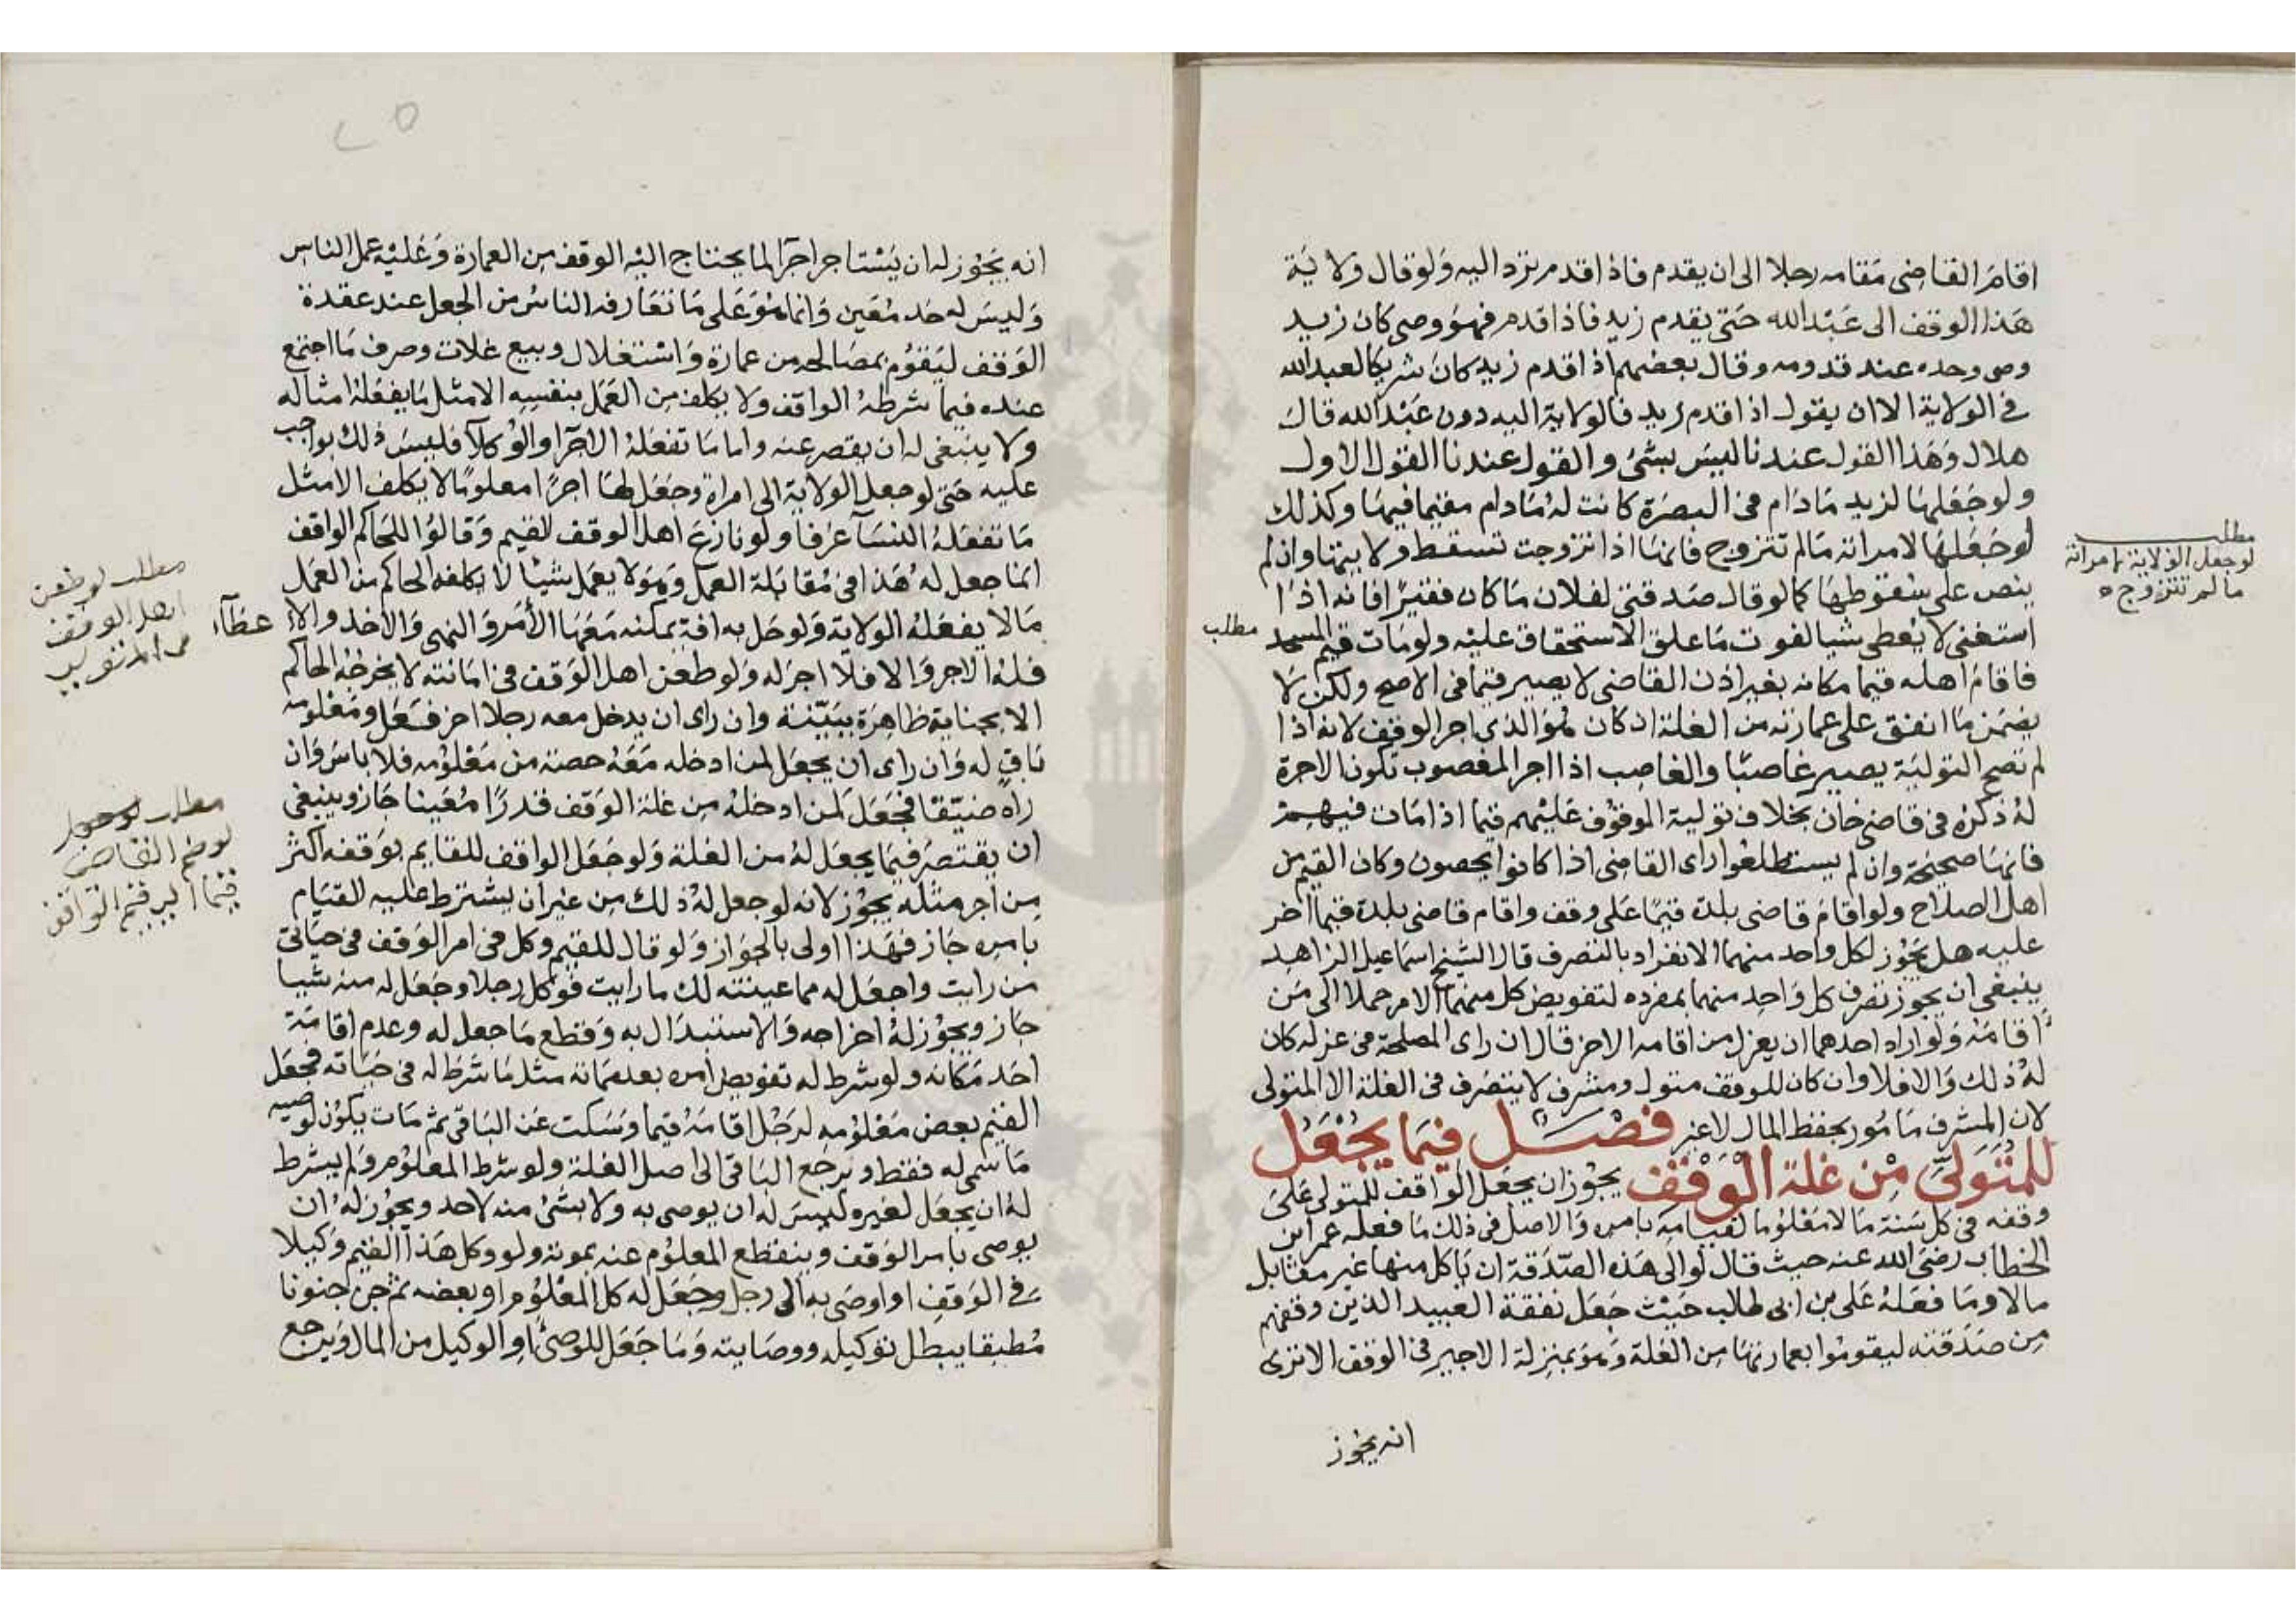 اقام القاضى مقامه رجلا الى ان يقدم فاذا قدم ترد اليه ولو قال ولاية
هذا الوقف الى عبد الله حتى يقدم زيد فاذا قدم فهو وصى كان زيد
وصى وحده عند قدومه وقال بعضهم اذا قدم زيد كان شريكا لعبد الله
فى الولاية الا ان يقول اذا قدم زيد فالولاية اليه دون عبد الله قال
هلال وهذا القول عندنا ليس بشئ والقول عندنا القول الاول
ولو جعلها لزيد ما دام فى البصرة كانت له ما دام مقيما فيها وكذلك
لو جعلها لامراته ما لم تتزوج فانها اذا تزوجت تسقط ولايتها وان لم
ينص على سقوطها كما لو قال صدقتى لفلان ما كان فقيرا فانه اذا
استغنى لا يعطى شيا لفوت ما علق الاستحقاق عليه ولو مات قيم المسجد
فاقام اهله قيما مكانه بغير اذن القاضى لا يصير قيما فى الاصح ولكن لا
يضمن ما انفق على عمارته من الغلة اذ كان هو الذى اجر الوقف لانه اذا
لم تصح التولية يصير غاصبا والغاصب اذا اجر المغصوب تكون الاجرة
له ذكره فى قاضى خان بخلاف تولية الموقوف عليهم قيما اذا مات قيمهم
فانها صحيحة وان لم يستطلعوا راى القاضى اذا كانوا يحصون وكان القيم من
اهل الصلاح ولو اقام قاضى بلدة قيما على وقف واقام قاضى بلدة قيما اخر
عليه هل يجوز لكل واحد منهما الانفراد بالتصرف قال الشيخ اسماعيل الزاهد
ينبغى ان يجوز تصرف كل واحد منهما بمفرده لتفويض كل منهما الامر حملا الى من
اقامه ولو اراد احدهما ان يعزل من اقامه الاخر قال ان راى المصلحة فى عزله كان
له ذلك والا فلا وان كان للوقف متول ومشرف لا يتصرف فى الغلة الا المتولى
لان المشرف مامور بحفظ المال لا غير فصل فيما يجعل
للمتولى من غلة الوقف يجوز ان يجعل الواقف للمتولى على
وقفه فى كل سنة مالا معلوما لقيامه بامره والاصل فى ذلك ما فعله عمر ابن
الخطاب رضى الله عنه حيث قال لوالى هذه الصدقة ان ياكل منها غير متاثل
مالا وما فعله على بن ابى طالب حيث جعل نفقة العبيد الذين وقفهم
من صدقته ليقوموا بعمارتها من الغلة وهو بمنزلة الاجير فى الوقف الا ترى
انه يجوز
مطلب
لو جعل الولاية لامراته
ما لم تتزوج
مطلب
انه يجوز له ان يستاجر اجرا لما يحتاج اليه الوقف من العمارة وعليه عمل الناس
وليس له حد معين وانما هو على ما تعارفه الناس من الجعل عند عقدة
الوقف ليقوم بمصالحه من عمارة واستغلال وبيع غلات وصرف ما اجتمع
عنده فيما شرطه الواقف ولا يكلف من العمل بنفسه الا مثل ما يفعله امثاله
ولا ينبغى له ان يقصر عنه واما ما تفعله الاجرا والوكلآ فليس ذلك بواجب
عليه حتى لو جعل الولاية الى امراة وجعل لها اجرا معلوما لا يكلف الا مثل
ما تفعله النسآ عرفا ولو نازع اهل الوقف لقيم وقالوا للحاكم الواقف
انما جعل له هذا فى مقابلة العمل وهو لا يعمل شيا لا يكلفه الحاكم من العمل
مالا يفعله الولاية ولو حل به افة يمكنه معها الامر والنهى والاخذ والاعطآء
فله الاجر والا فلا اجر له ولو طعن اهل الوقف فى امانته لا يخرجه الحاكم
الا بجناية ظاهرة ببينة وان راى ان يدخل معه رجلا اخر فعل ومعلومه
باق له وان راى ان يجعل لمن ادخله معه حصة من معلومه فلا باس وان
راه ضيقا فجعل لمن ادخله من غلة الوقف قدرا معينا جاز وينبغى
ان يقتصر فيما يجعل له من الغلة ولو جعل الواقف للقايم بوقفه اكثر
من اجر مثله يجوز لانه لو جعل له ذلك من غير ان يشترط عليه القيام
بامره جاز فهذا اولى بالجواز ولو قال للقيم وكل فى امر الوقف فى حياتى
من رايت واجعل له مما عينته لك ما رايت فوكل رجلا وجعل له منه شيا
جاز ويجوز له اخراجه والاستبدال به وقطع ما جعل له وعدم اقامة
احد مكانه ولو شرط له تفويض امره بعد مماته مثل ما شرط له فى حياته فجعل
القيم بعض معلومه لرجل اقامه قيما وسكت عن الباقى ثم مات يكون لوصيه
ما سمى له فقط ويرجع الباقى الى اصل الغلة ولو شرط المعلوم ولم يشرط
له ان يجعل لغيره ليس له ان يوصى به ولا بشئ منه لاحد ويجوز له ان
يوصى بامر الوقف وينقطع المعلوم عنه بموته ولو وكل هذا القيم وكيلا
فى الوقف او اوصى به الى رجل وجعل له كل المعلوم او بعضه ثم جن جنونا
مطبقا يبطل توكيله ووصايته وما جعل للوصى او الوكيل من المال ويرجع
مطلب لو طعن
اهل الوقف
فى المتولى
مطلب
القاضى
قيما